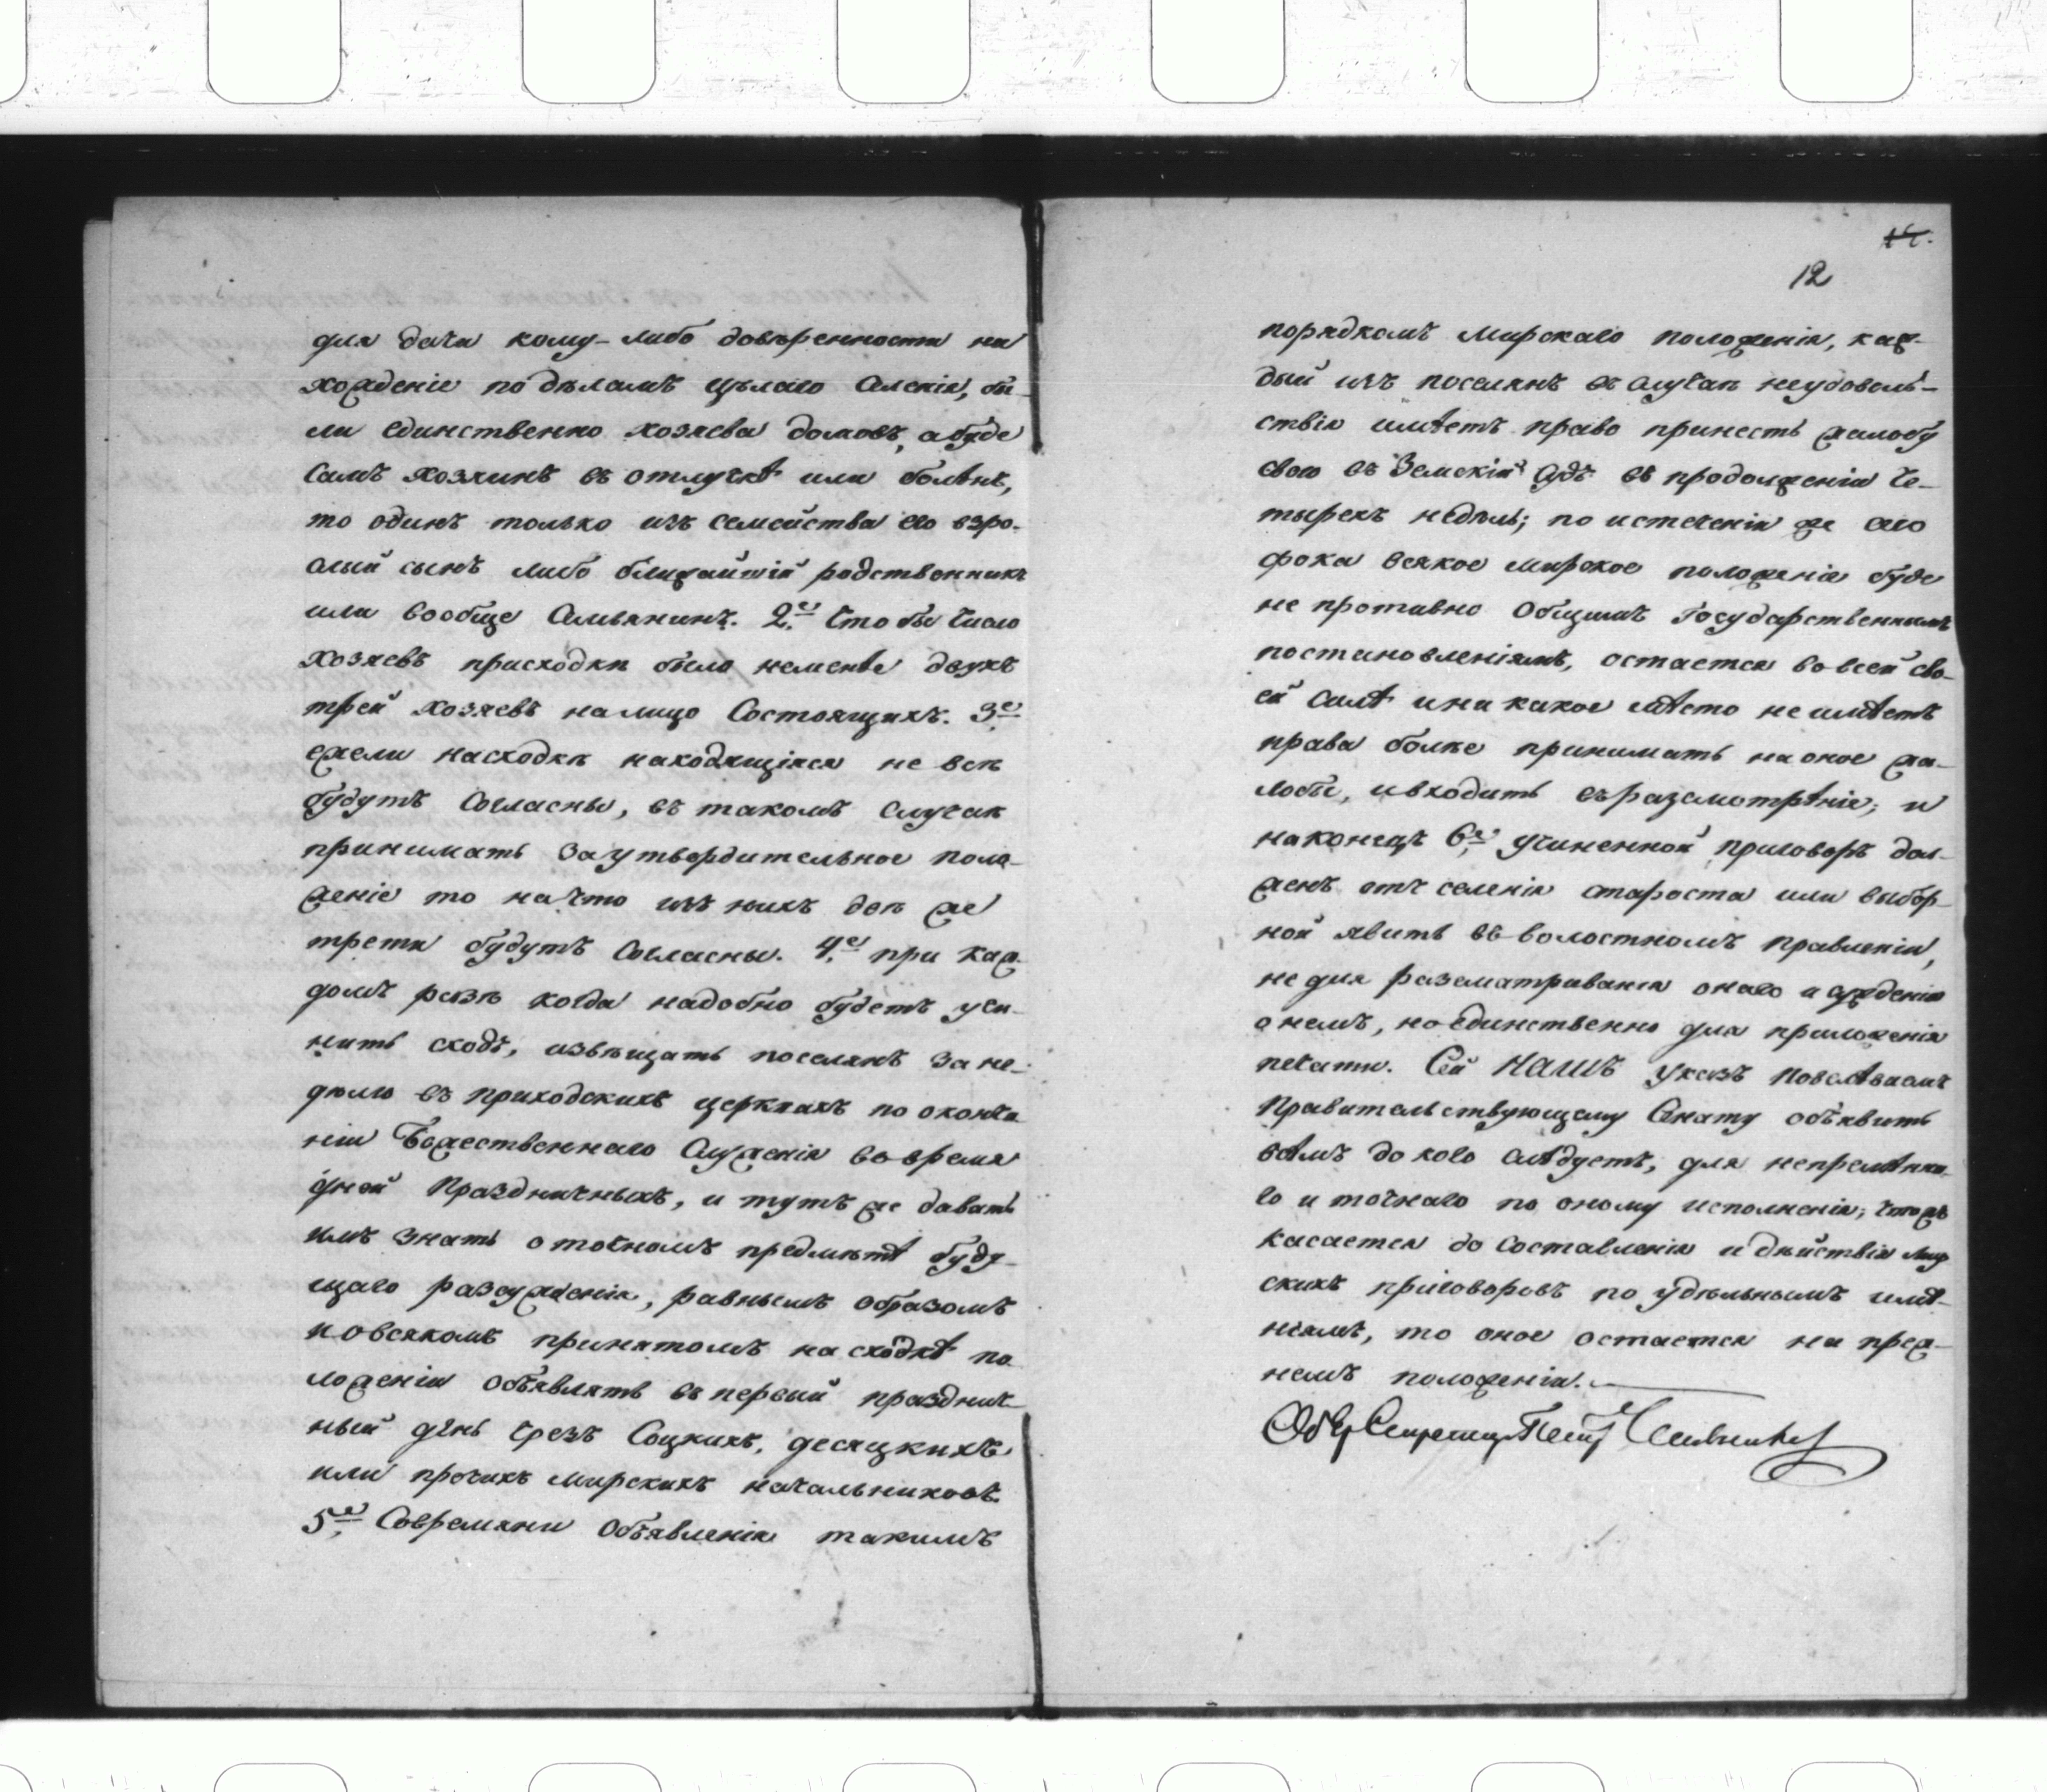 для дачи кому-либо довѣренности на
хожденіе по дѣламъ цѣлаго селенія, бы-
ли единственно хозяева домовъ, а буде
самъ хозяинъ въ отлучкѣ или болѣнъ,
то одинъ только изъ семейства его взро-
слый сынъ либо ближайшій родственникъ
или вообще Сельянинъ. 2е. Что бы число
Хозяевъ присходкѣ было неменѣе двухъ
трей хозяевъ налицо Состоящихъ. 3е.
ежели насходкѣ находящіяся не всѣ
будутъ Согласны, въ такомъ случаѣ
принимать заутвердительное поло-
женіе то начто изъ нихъ двѣ же
трети будутъ Согласны. 4е. при каж-
домъ разѣ когда надобно будетъ учи-
нить сходъ, извѣщать поселянъ за не-
дѣлю въ приходскихъ церквахъ по оконча
ніи Божественнаго Служенія вовремя
дней Праздничныхъ, и тутъ же давать
имъ знать оточномъ предмѣтѣ буду-
щаго разсужденія, равнымъ образомъ
и овсякомъ принятомъ на сходкѣ по
ложеніи объявлять въ первый празднич-
ный день чрезъ Соцкихъ, десяцкихъ
или прочихъ мирскихъ начальниковъ.
5е. Современи Объявленія такимъ
14.
12
порядкомъ Мирскаго положенія, каж-
дый изъ поселянъ въ случаѣ неудоволь-
ствія имѣетъ право принесть жалобу
свою въ Земскій Судъ въ продолженіи че-
тырехъ недѣль; по истеченіи же сего
срока всякое мирское положеніе буде
не противно Общимъ Государственнымъ
постановленіямъ, остается вовсей сво-
ей силѣ и ни какое мѣсто не имѣетъ
права болѣе принимать на оное жа-
лобы, и входить въ разсмотрѣніе; и
наконецъ 6е. учиненной приговоръ дол-
женъ отъ селенія староста или выбор-
ной явить въ волостномъ правленіи,
не для разсматриванія онаго и сужденія
о немъ, но единственно для приложенія
печати. Сей НАШЪ указъ повелѣваемъ
Правительствующему Сенату объявить
всѣмъ до кого слѣдуетъ, для непремѣнна
го и точнаго по оному исполненія; чтожъ
касается до составленія и дѣйствія мир
скихъ приговоровъ по удѣльнымъ имѣ-
ніямъ, то оное остается на преж-
немъ положеніи.